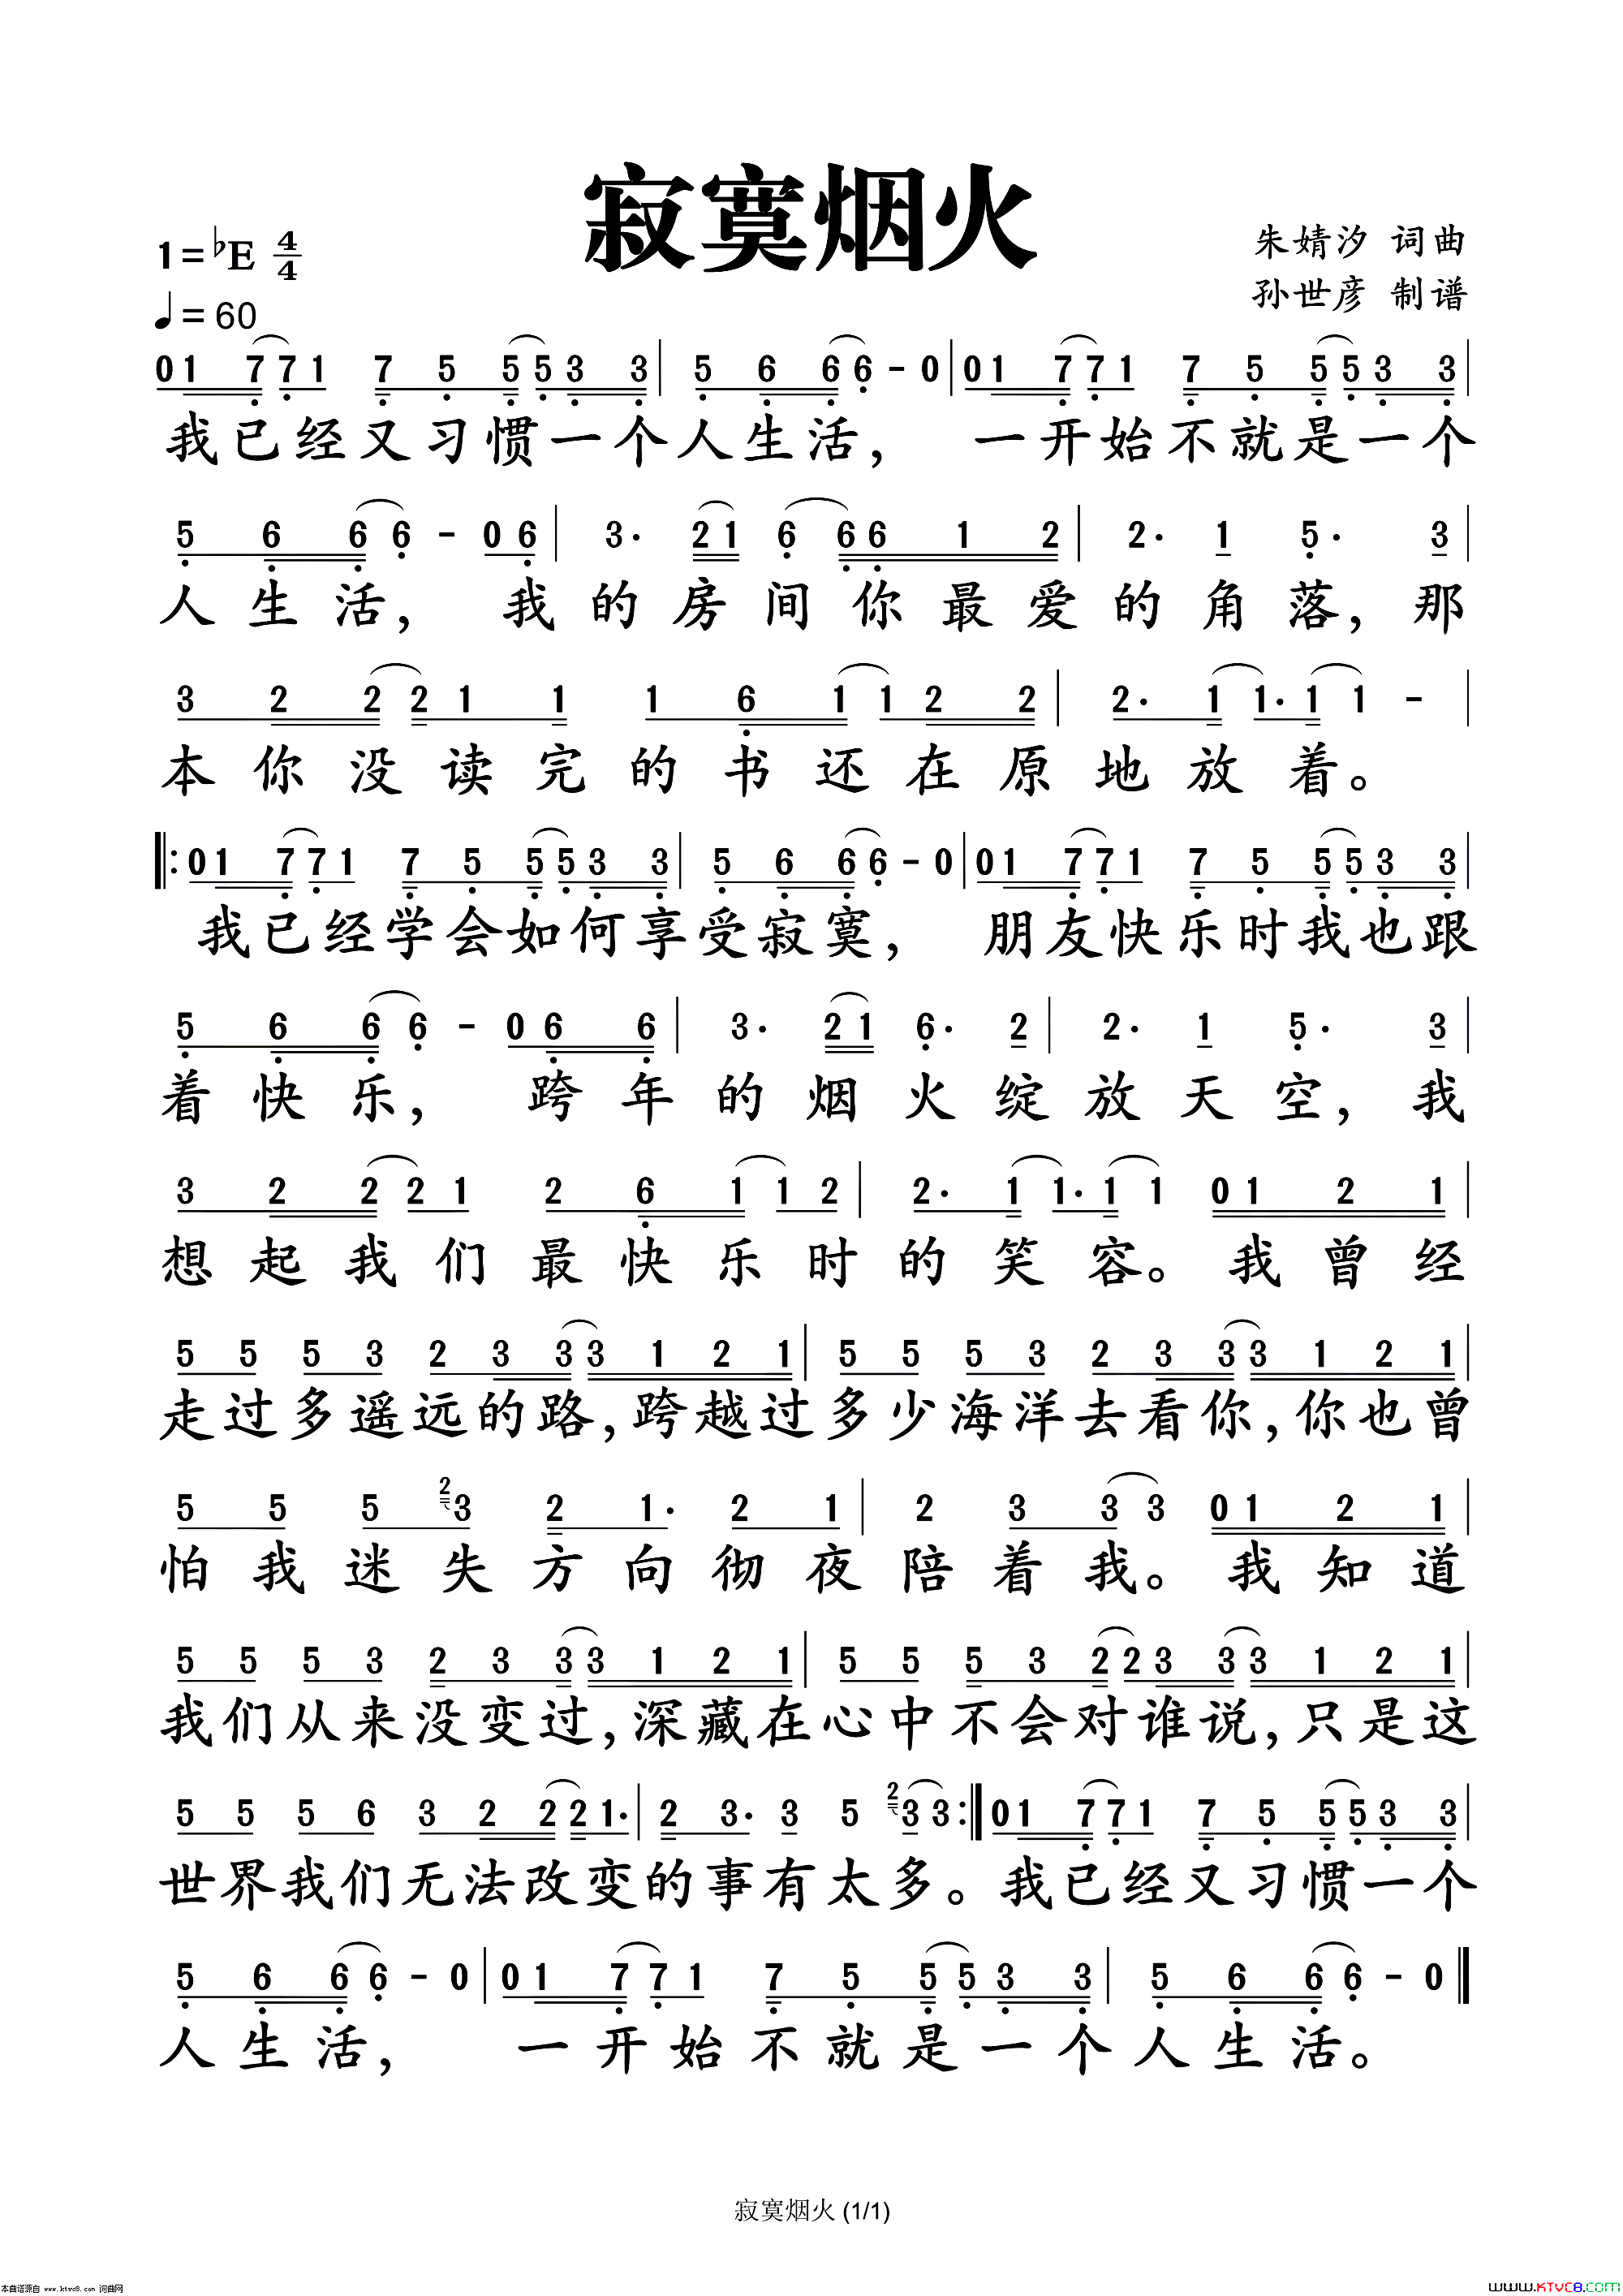 寂寞烟火
1=♭E 4/4
朱婧汐 词曲
♩=60
孙世彦 制谱
0 1 7 7 1 7 5 5 5 3 3 | 5 6 6 6 - 0 | 0 1 7 7 1 7 5 5 5 3 3 |
我已经又习惯一个人生活, 一开始不就是一个
5 6 6 6 - 0 6 | 3· 2 1 6 6 6 1 2 | 2· 1 5· 3 |
人生活, 我的房间你最爱的角落,那
3 2 2 2 1 1 1 6 1 1 2 2 | 2· 1 1· 1 1 - |
本你没读完的书还在原地放着。
‖: 0 1 7 7 1 7 5 5 5 3 3 | 5 6 6 6 - 0 | 0 1 7 7 1 7 5 5 5 3 3 |
我已经学会如何享受寂寞, 朋友快乐时我也跟
5 6 6 6 - 0 6 6 | 3· 2 1 6· 2 | 2· 1 5· 3 |
着快乐, 跨年的烟火绽放天空,我
3 2 2 2 1 2 6 1 1 2 | 2· 1 1· 1 1 0 1 2 1 |
想起我们最快乐时的笑容。我曾经
5 5 5 3 2 3 3 3 1 2 1 | 5 5 5 3 2 3 3 3 1 2 1 |
走过多遥远的路,跨越过多少海洋去看你,你也曾
5 5 5 2 3 2 1· 2 1 | 2 3 3 3 0 1 2 1 |
怕我迷失方向彻夜陪着我。我知道
5 5 5 3 2 3 3 3 1 2 1 | 5 5 5 3 2 2 3 3 3 1 2 1 |
我们从来没变过,深藏在心中不会对谁说,只是这
5 5 5 6 3 2 2 2 1· | 2 3· 3 5 2 3 3 :‖ 0 1 7 7 1 7 5 5 5 3 3 |
世界我们无法改变的事有太多。我已经又习惯一个
5 6 6 6 - 0 | 0 1 7 7 1 7 5 5 5 3 3 | 5 6 6 6 - 0 ‖
人生活, 一开始不就是一个人生活。
寂寞烟火 (1/1)
本曲谱源自 www.ktvc8.com 词曲网
WWW.KTVC8.COM